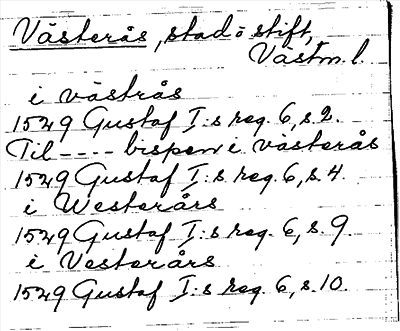 Västerås, stad o stift,
Västm. l.
i västrås
1529 Gustaf I:s reg. 6, s. 2.
Til ---- bispen i västerås
1529 Gustaf I:s reg. 6, s. 4.
i Westerårs
1529 Gustaf I:s reg. 6, s. 9.
i Vesterårs
1529 Gustaf I:s reg. 6, s. 10.